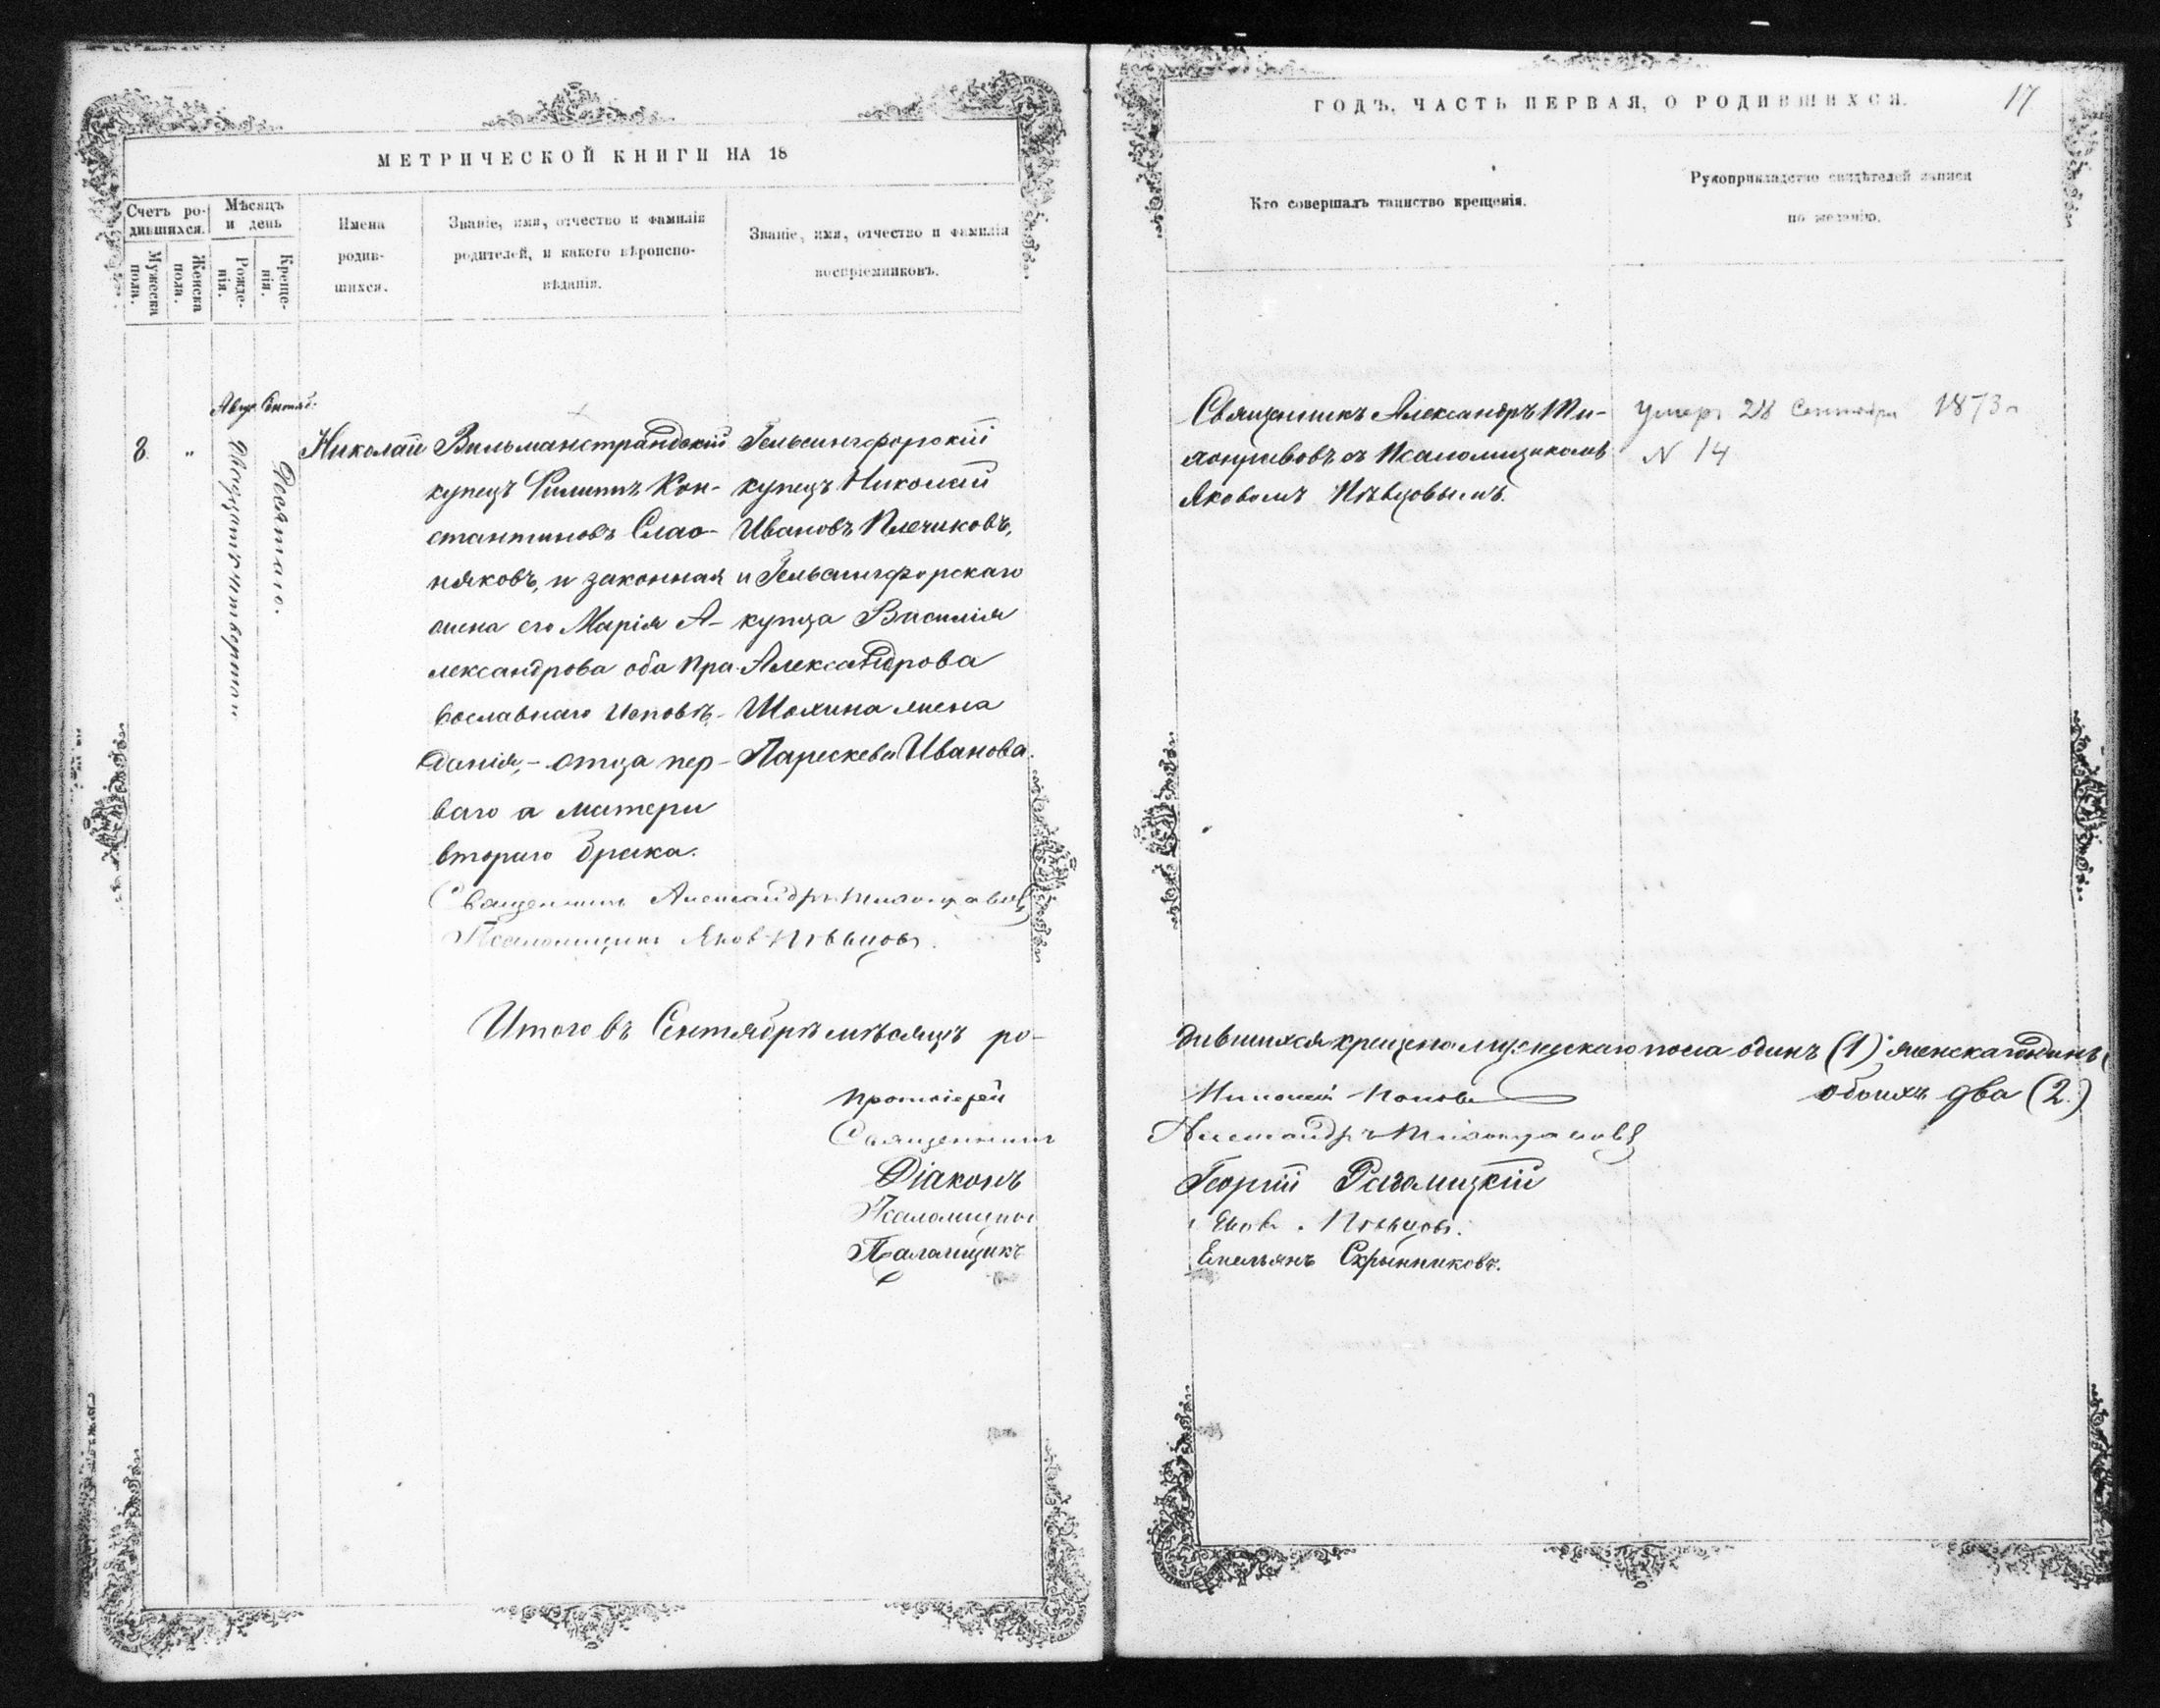 МЕТРИЧЕСКОЙ КНИГИ НА 18
Счетъ ро-
дившихся.
Мѣсяцъ
и день
Мужеска
пола.
Женска
пола.
Рожде-
нія.
Креще-
нія.
Имена
родив-
шихся.
Званіе, имя, отчество и фамилія
родителей, и какого вѣроиспо-
вѣданія.
Званіе, имя, отчество и фамилія
воспріемниковъ.
Авгу. Сентяб.
8. „
Двадцать четвертаго
Десятаго.
Николай
Вильманстрандскій
купецъ Филиппъ Кон-
стантиновъ Слас-
няковъ, и законная
жена его Марія А-
лександрова оба пра-
вославнаго исповѣ-
данія, - отца пер-
ваго а матери
втораго брака.
Гельсингфорскій
купецъ Николай
Ивановъ Плечиковъ,
и Гельсингфорскаго
купца Василія
Александрова
Шохина жена
Параскева Иванова.
Священникъ Александръ
Псаломщикъ Яковъ Пѣвцовъ.
Итого въ Сентябрѣ мѣсяцѣ ро-
Протоіерей
Священникъ
Діаконъ
Псаломщикъ
Псаломщикъ
ГОДЪ, ЧАСТЬ ПЕРВАЯ, О РОДИВШИХСЯ.
17
Кто совершалъ таинство крещенія.
Рукоприкладство свидѣтелей записи
по желанію.
Священникъ Александръ Ми-
съ Псаломщикомъ
Яковомъ Пѣвцовымъ.
Умеръ 28 Сентября 1873 г
N 14
дившихся крещено мужескаго пола одинъ (1) женска одинъ (
обоихъ два (2.)
Николай Поповъ
Александръ
Георгій
Яковъ Пѣвцовъ.
Емельянъ Скрынниковъ.